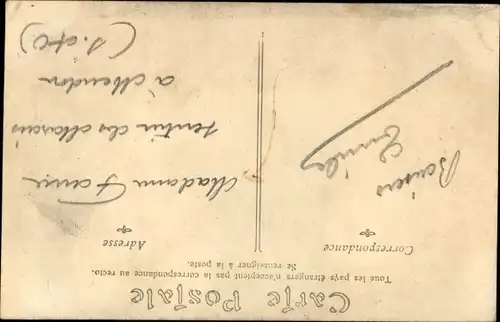 Carte Postale
Tous les pays étrangers n'acceptent pas la correspondance au recto.
Se renseigner à la poste.
Correspondance
Adresse
Baisers
Emilie
Madame Faure
sentier des Marais
à Meudon
(S. et O)